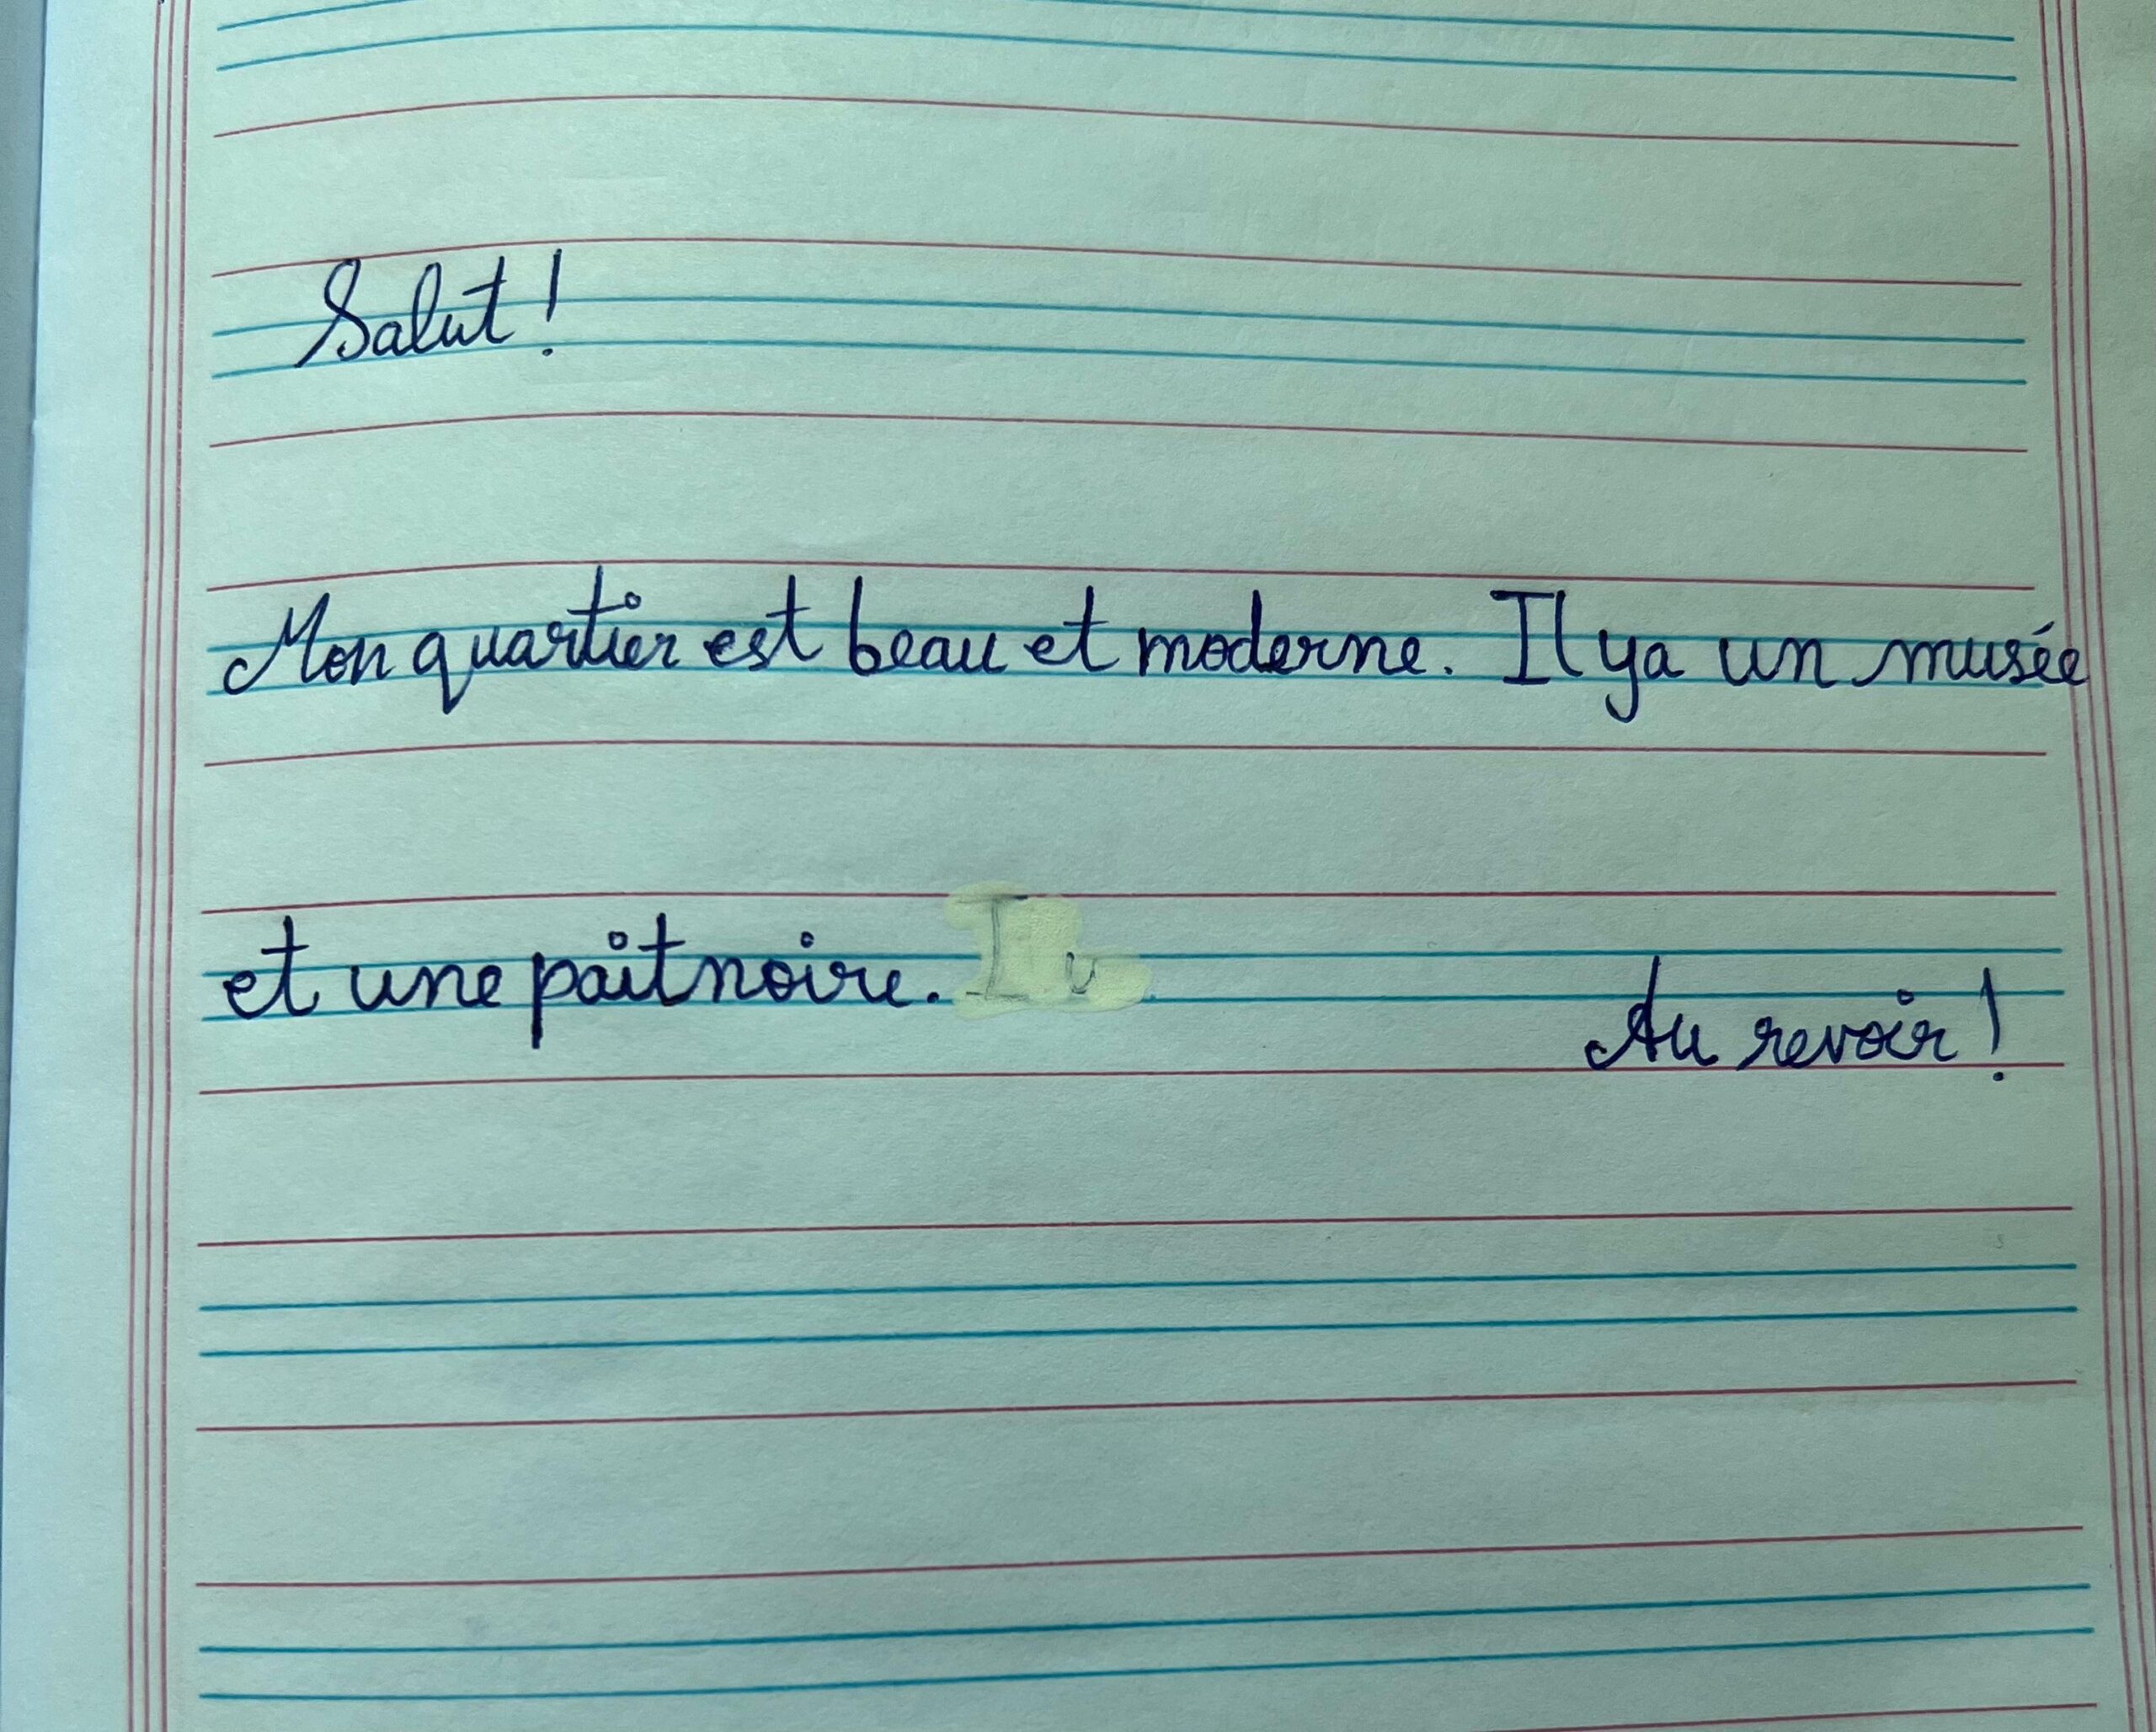 Salut!
Mon quartier est beau et moderne. Il ya un musée
et une paitnoire.
Au revoir!